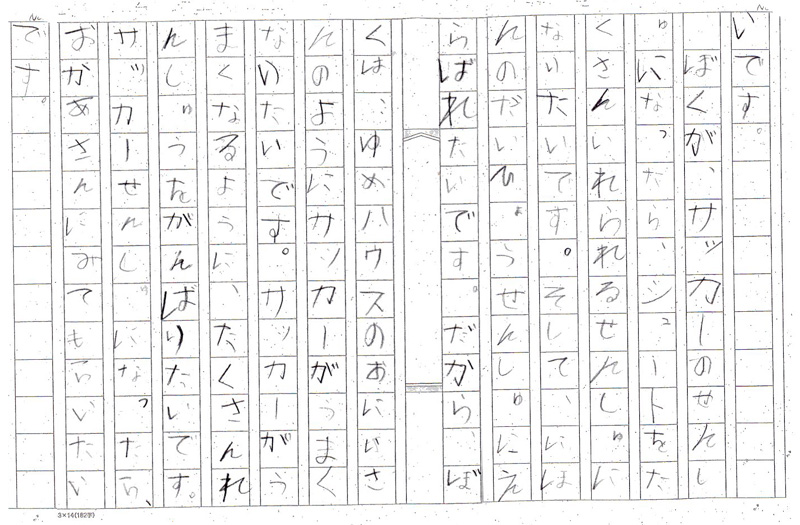 No.
いです。
ぼくが、サッカーのせんし
ゅになったら、シュートをた
くさんいれられるせんしゅに
なりたいです。そして、にほ
んのだいひょうせんしゅにえ
らばれたいです。だから、ぼ
くは、ゆめハウスのおにいさ
んのようにサッカーがうまく
なりたいです。サッカーがう
まくなるように、たくさんれ
んしゅうをがんばりたいです。
サッカーせんしゅになったら、
おかあさんにみてもらいたい
です。
No.